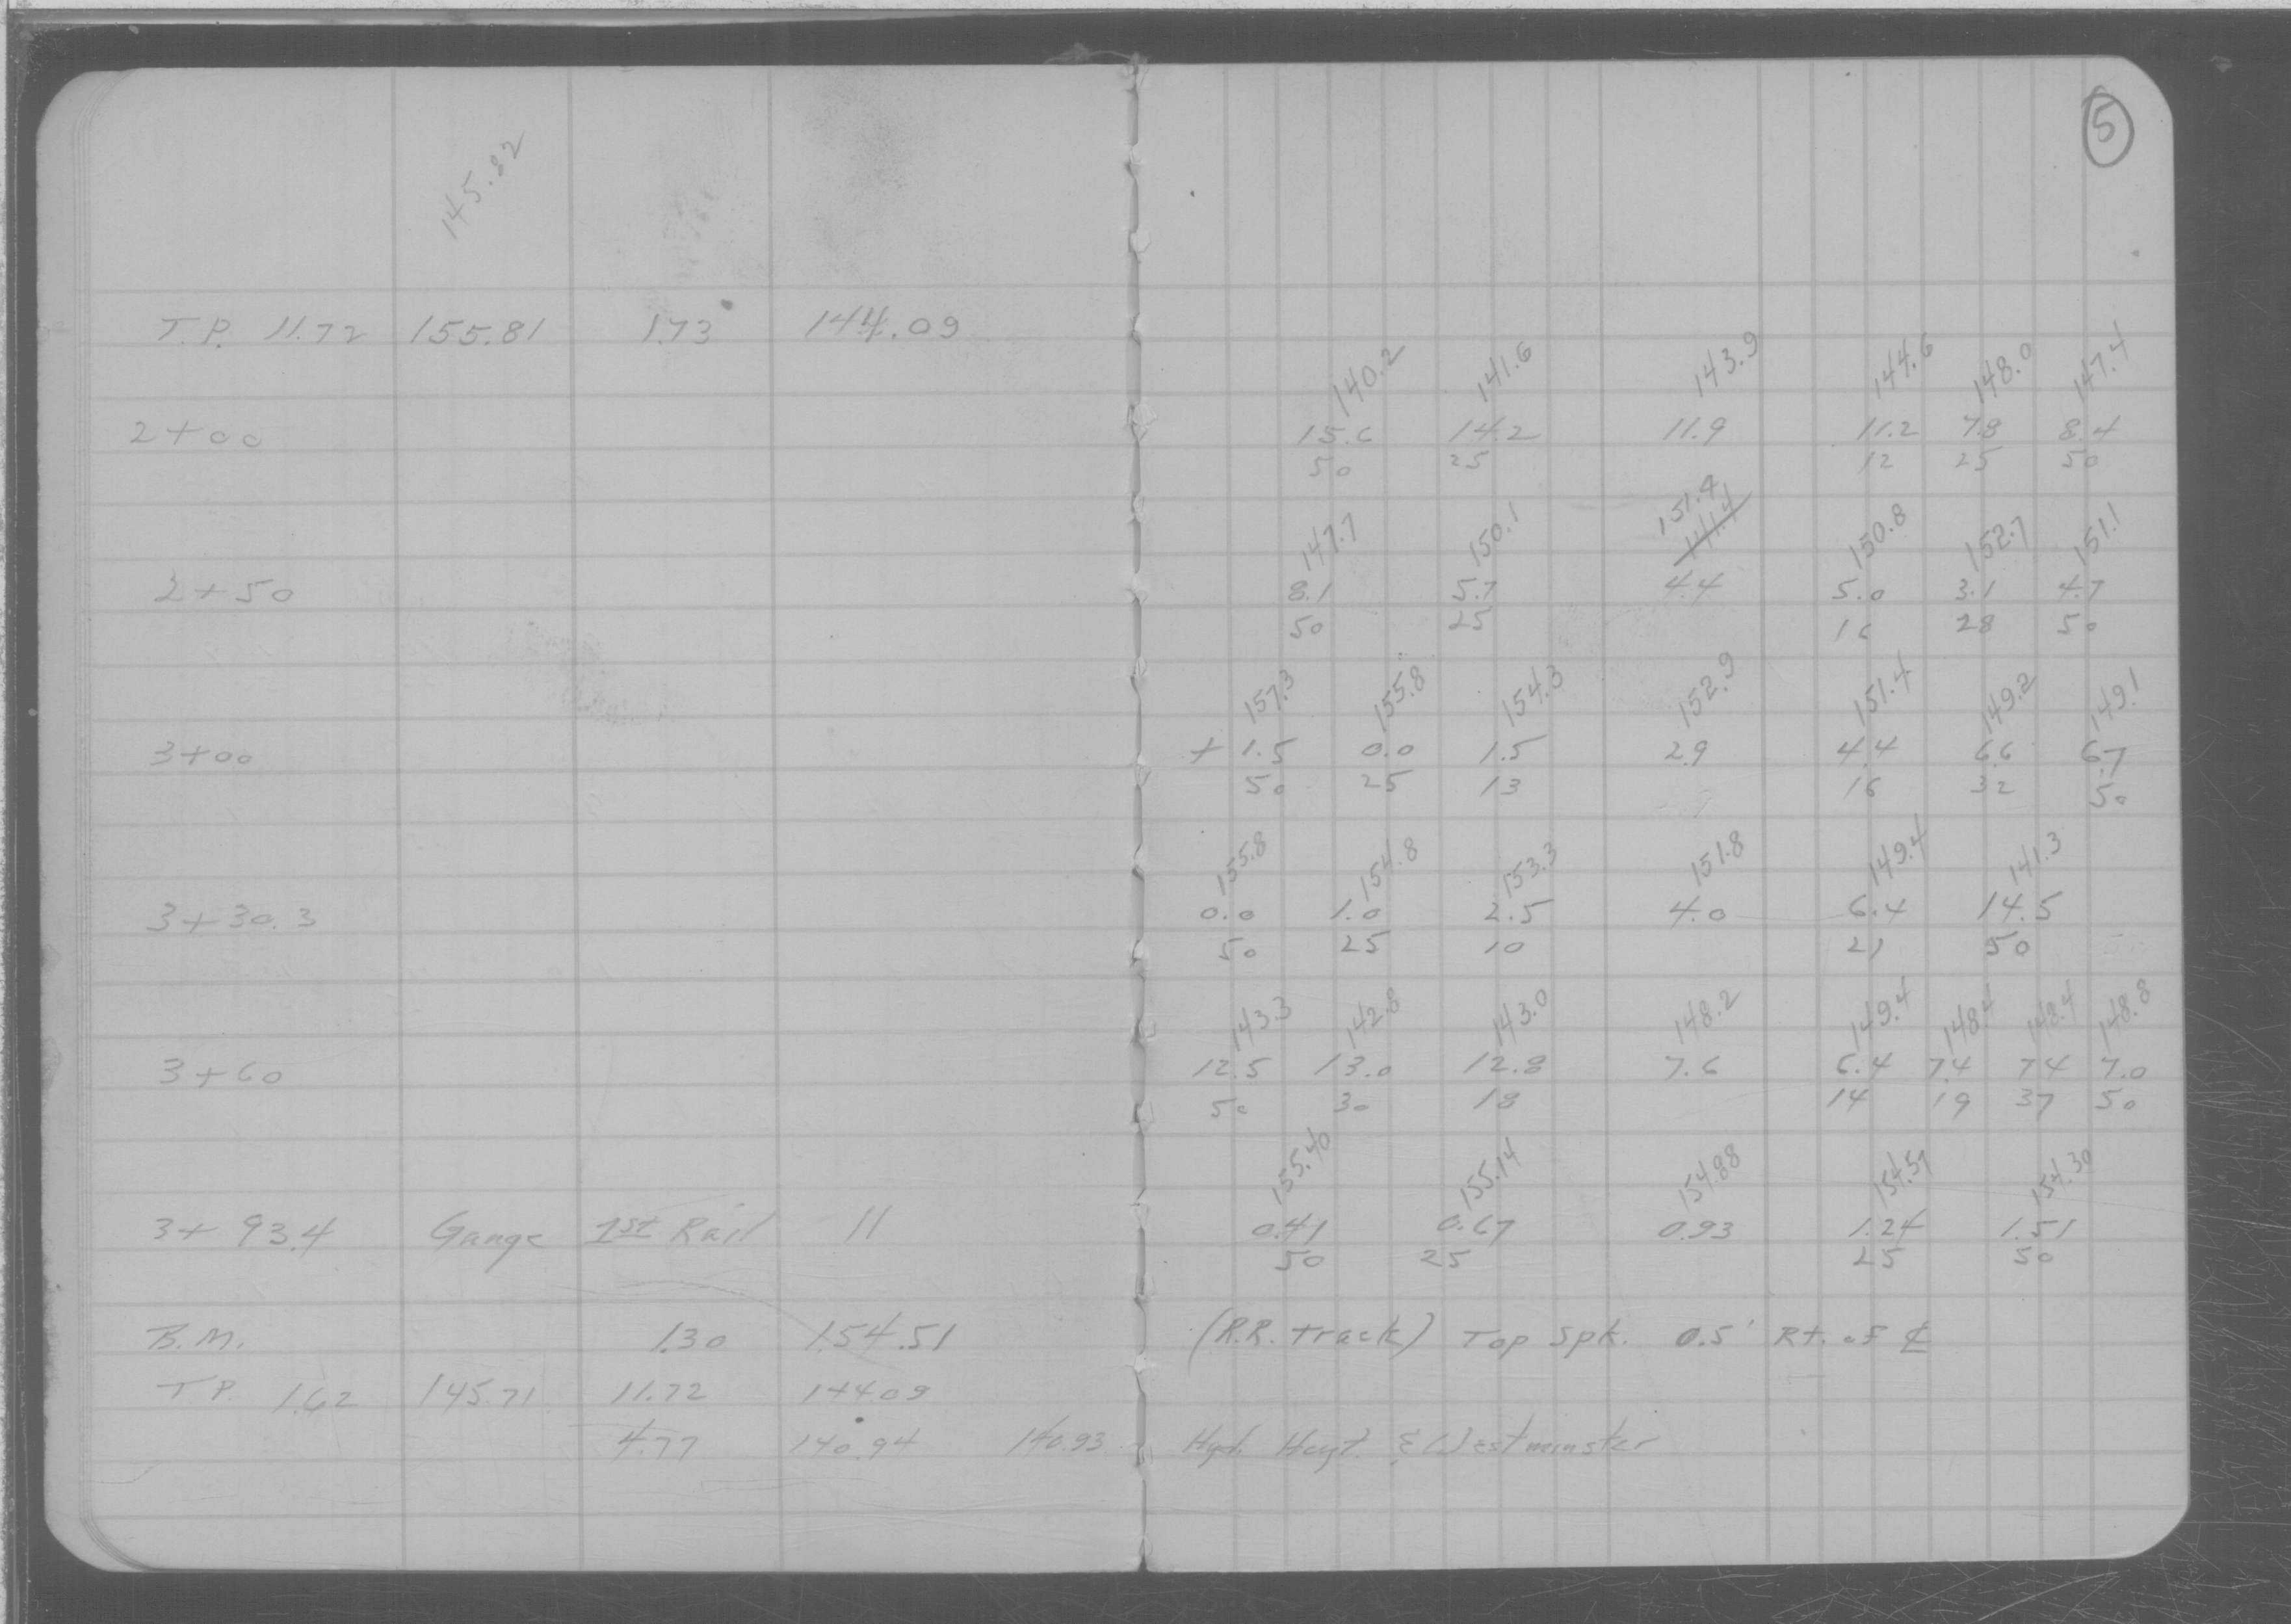 5
145.82
T.P. 11.72 155.81 1.73 144.09
140.2 141.6 143.9 144.6 148.0 147.4
2+00 15.6 14.2 11.9 11.2 7.8 8.4
50 25 12 25 50
151.4
147.7 150.1 141.4 150.8 152.7 151.1
2+50 8.1 5.7 4.4 5.0 3.1 4.7
50 25 16 28 50
157.3 155.8 154.3 152.9 151.4 149.2 149.1
3+00 +1.5 0.0 1.5 2.9 4.4 6.6 6.7
50 25 13 16 32 50
155.8 154.8 153.3 151.8 149.4 141.3
3+30.3 0.0 1.0 2.5 4.0 6.4 14.5
50 25 10 21 50
143.3 142.8 143.0 148.2 149.4 148.4 148.4 148.8
3+60 12.5 13.0 12.8 7.6 6.4 7.4 7.4 7.0
50 30 18 14 19 37 50
155.40 155.14 154.88 154.57 154.30
3+93.4 Gange 1st Rail 11 0.41 0.67 0.93 1.24 1.51
50 25 25 50
B.M. 1.30 154.51 (R.R. Track) Top Spk. 0.5' Rt. of ℄
T.P. 1.62 145.71 11.72 144.09
4.77 140.94 140.93 Hyd. Hoyt & Westminster